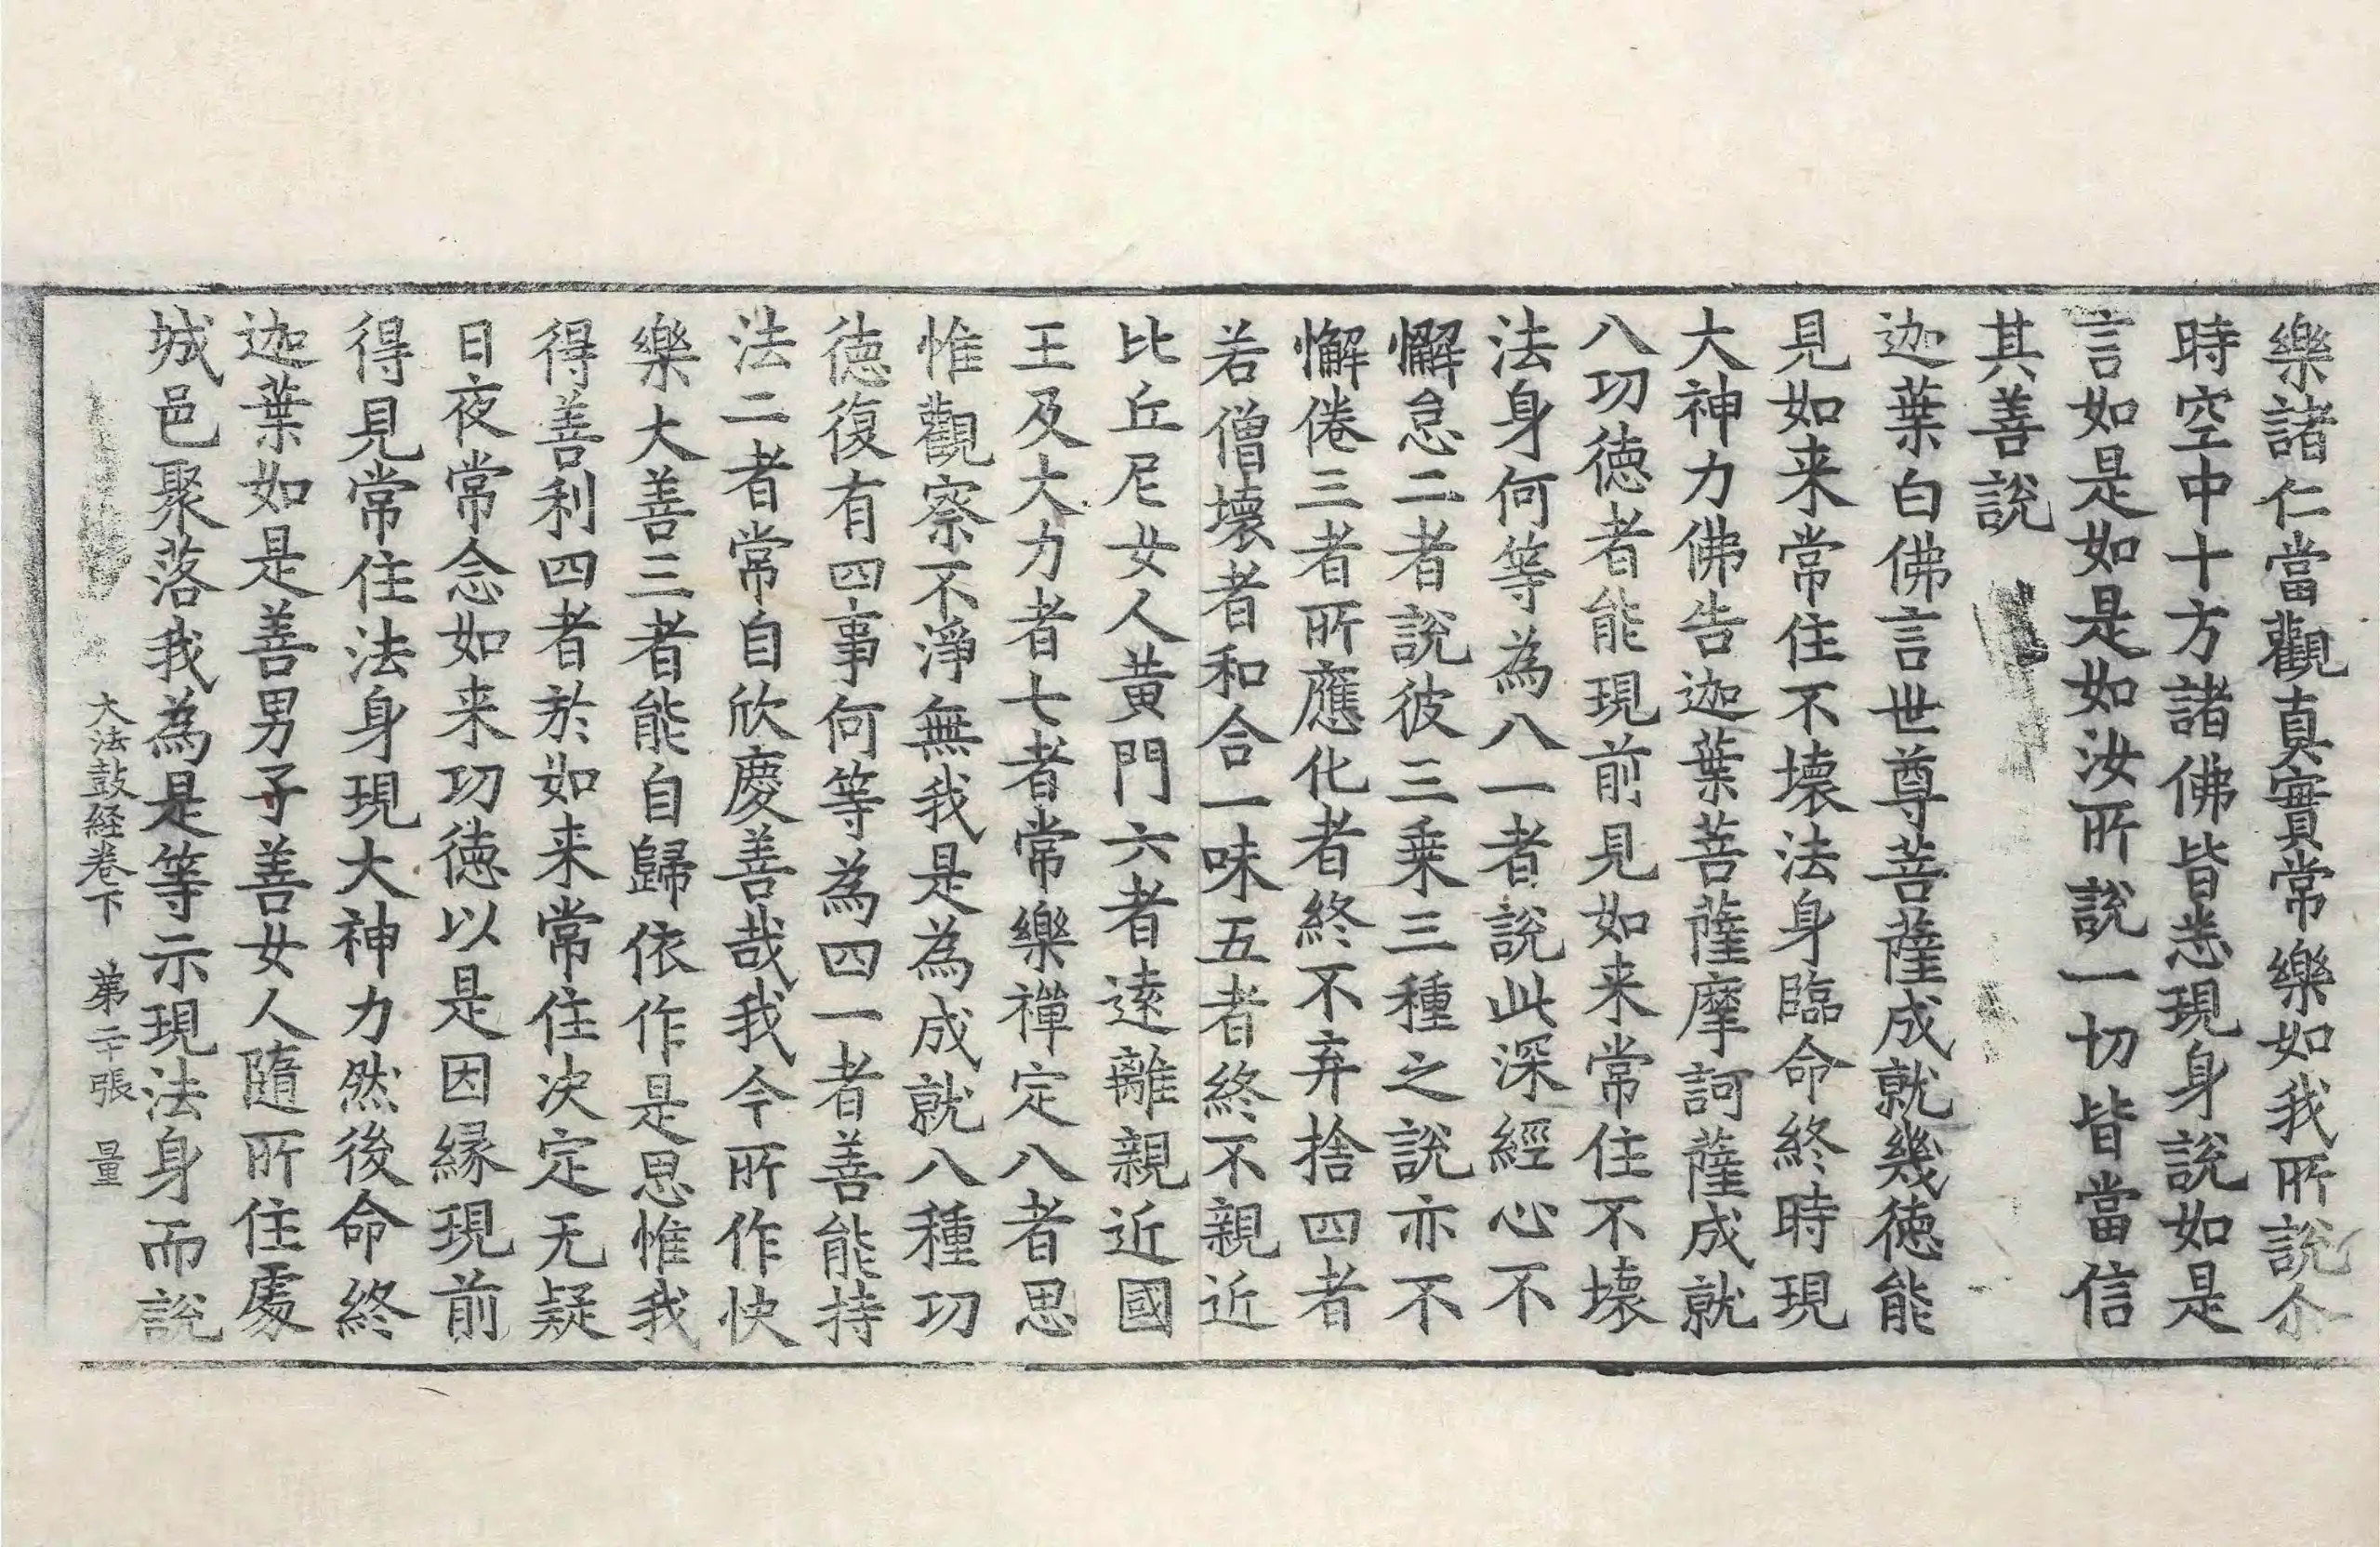 樂諸仁當觀真實常樂如我所說尒
時空中十方諸佛皆悉現身說如是
言如是如是如汝所說一切皆當信
其善說
迦葉白佛言世尊菩薩成就幾徳能
見如来常住不壞法身臨命終時現
大神力佛告迦葉菩薩摩訶薩成就
八功徳者能現前見如来常住不壞
法身何等為八一者說此深經心不
懈怠二者說彼三乗三種之說亦不
懈倦三者所應化者終不弃捨四者
若僧壞者和合一味五者終不親近
比丘尼女人黄門六者逺離親近國
王及大力者七者常樂禪定八者思
惟觀察不淨無我是為成就八種功
徳復有四事何等為四一者善能持
法二者常自欣慶善哉我今所作快
樂大善三者能自歸依作是思惟我
得善利四者於如来常住决定无疑
日夜常念如来功徳以是因緣現前
得見常住法身現大神力然後命終
迦葉如是善男子善女人隨所住處
城邑聚落我為是等示現法身而說
大法鼓経卷下 苐二十張 量